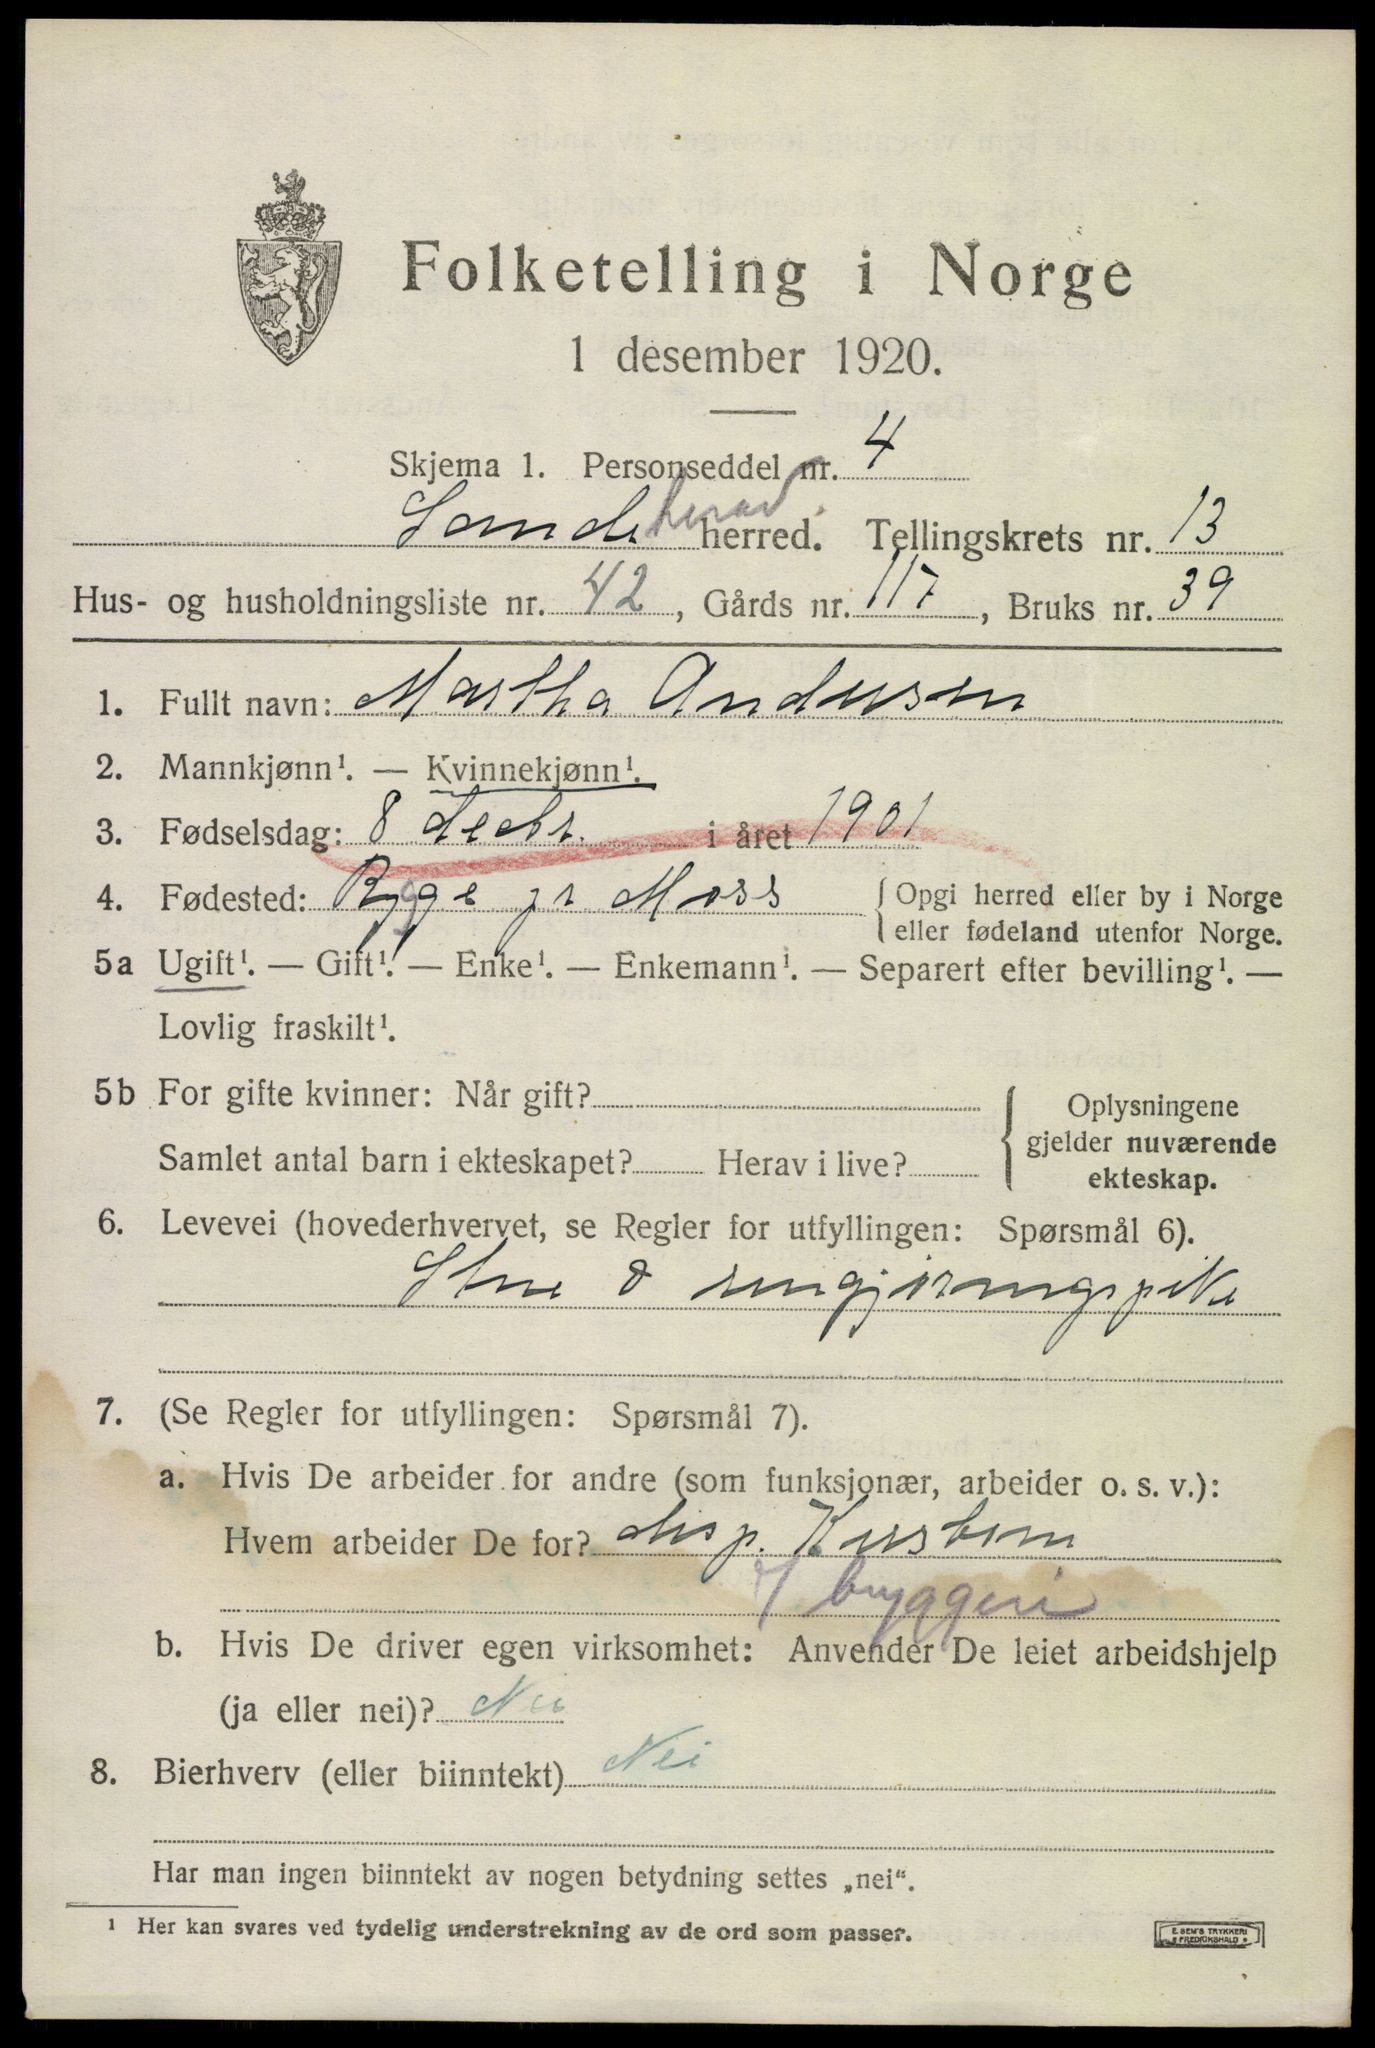 Folketelling i Norge
1 desember 1920.
Skjema 1. Personseddel nr. 4
Sandeherad herred. Tellingskrets nr. 13
Hus- og husholdningsliste nr. 42, Gårds nr. 117, Bruks nr. 39
1. Fullt navn: Martha Andersen
2. Mannkjønn¹. — Kvinnekjønn¹.
3. Fødselsdag: 8 decbr. i året 1901
4. Fødested: Rygge pr Moss { Opgi herred eller by i Norge
eller fødeland utenfor Norge.
5a Ugift¹. — Gift¹. — Enke¹. — Enkemann¹. — Separert efter bevilling¹. —
Lovlig fraskilt¹.
5b For gifte kvinner: Når gift?
Samlet antal barn i ekteskapet? Herav i live?
{ Oplysningene
gjelder nuværende
ekteskap.
6. Levevei (hovederhvervet, se Regler for utfyllingen: Spørsmål 6).
Stue & rengjøringspike
7. (Se Regler for utfyllingen: Spørsmål 7).
a. Hvis De arbeider for andre (som funksjonær, arbeider o. s. v.):
Hvem arbeider De for? disp.
bryggeri
b. Hvis De driver egen virksomhet: Anvender De leiet arbeidshjelp
(ja eller nei)? Nei
8. Bierhverv (eller biinntekt) Nei
Har man ingen biinntekt av nogen betydning settes „nei".
¹ Her kan svares ved tydelig understrekning av de ord som passer.
E. SEM'S TRYKKERI
FREDRIKSHALD